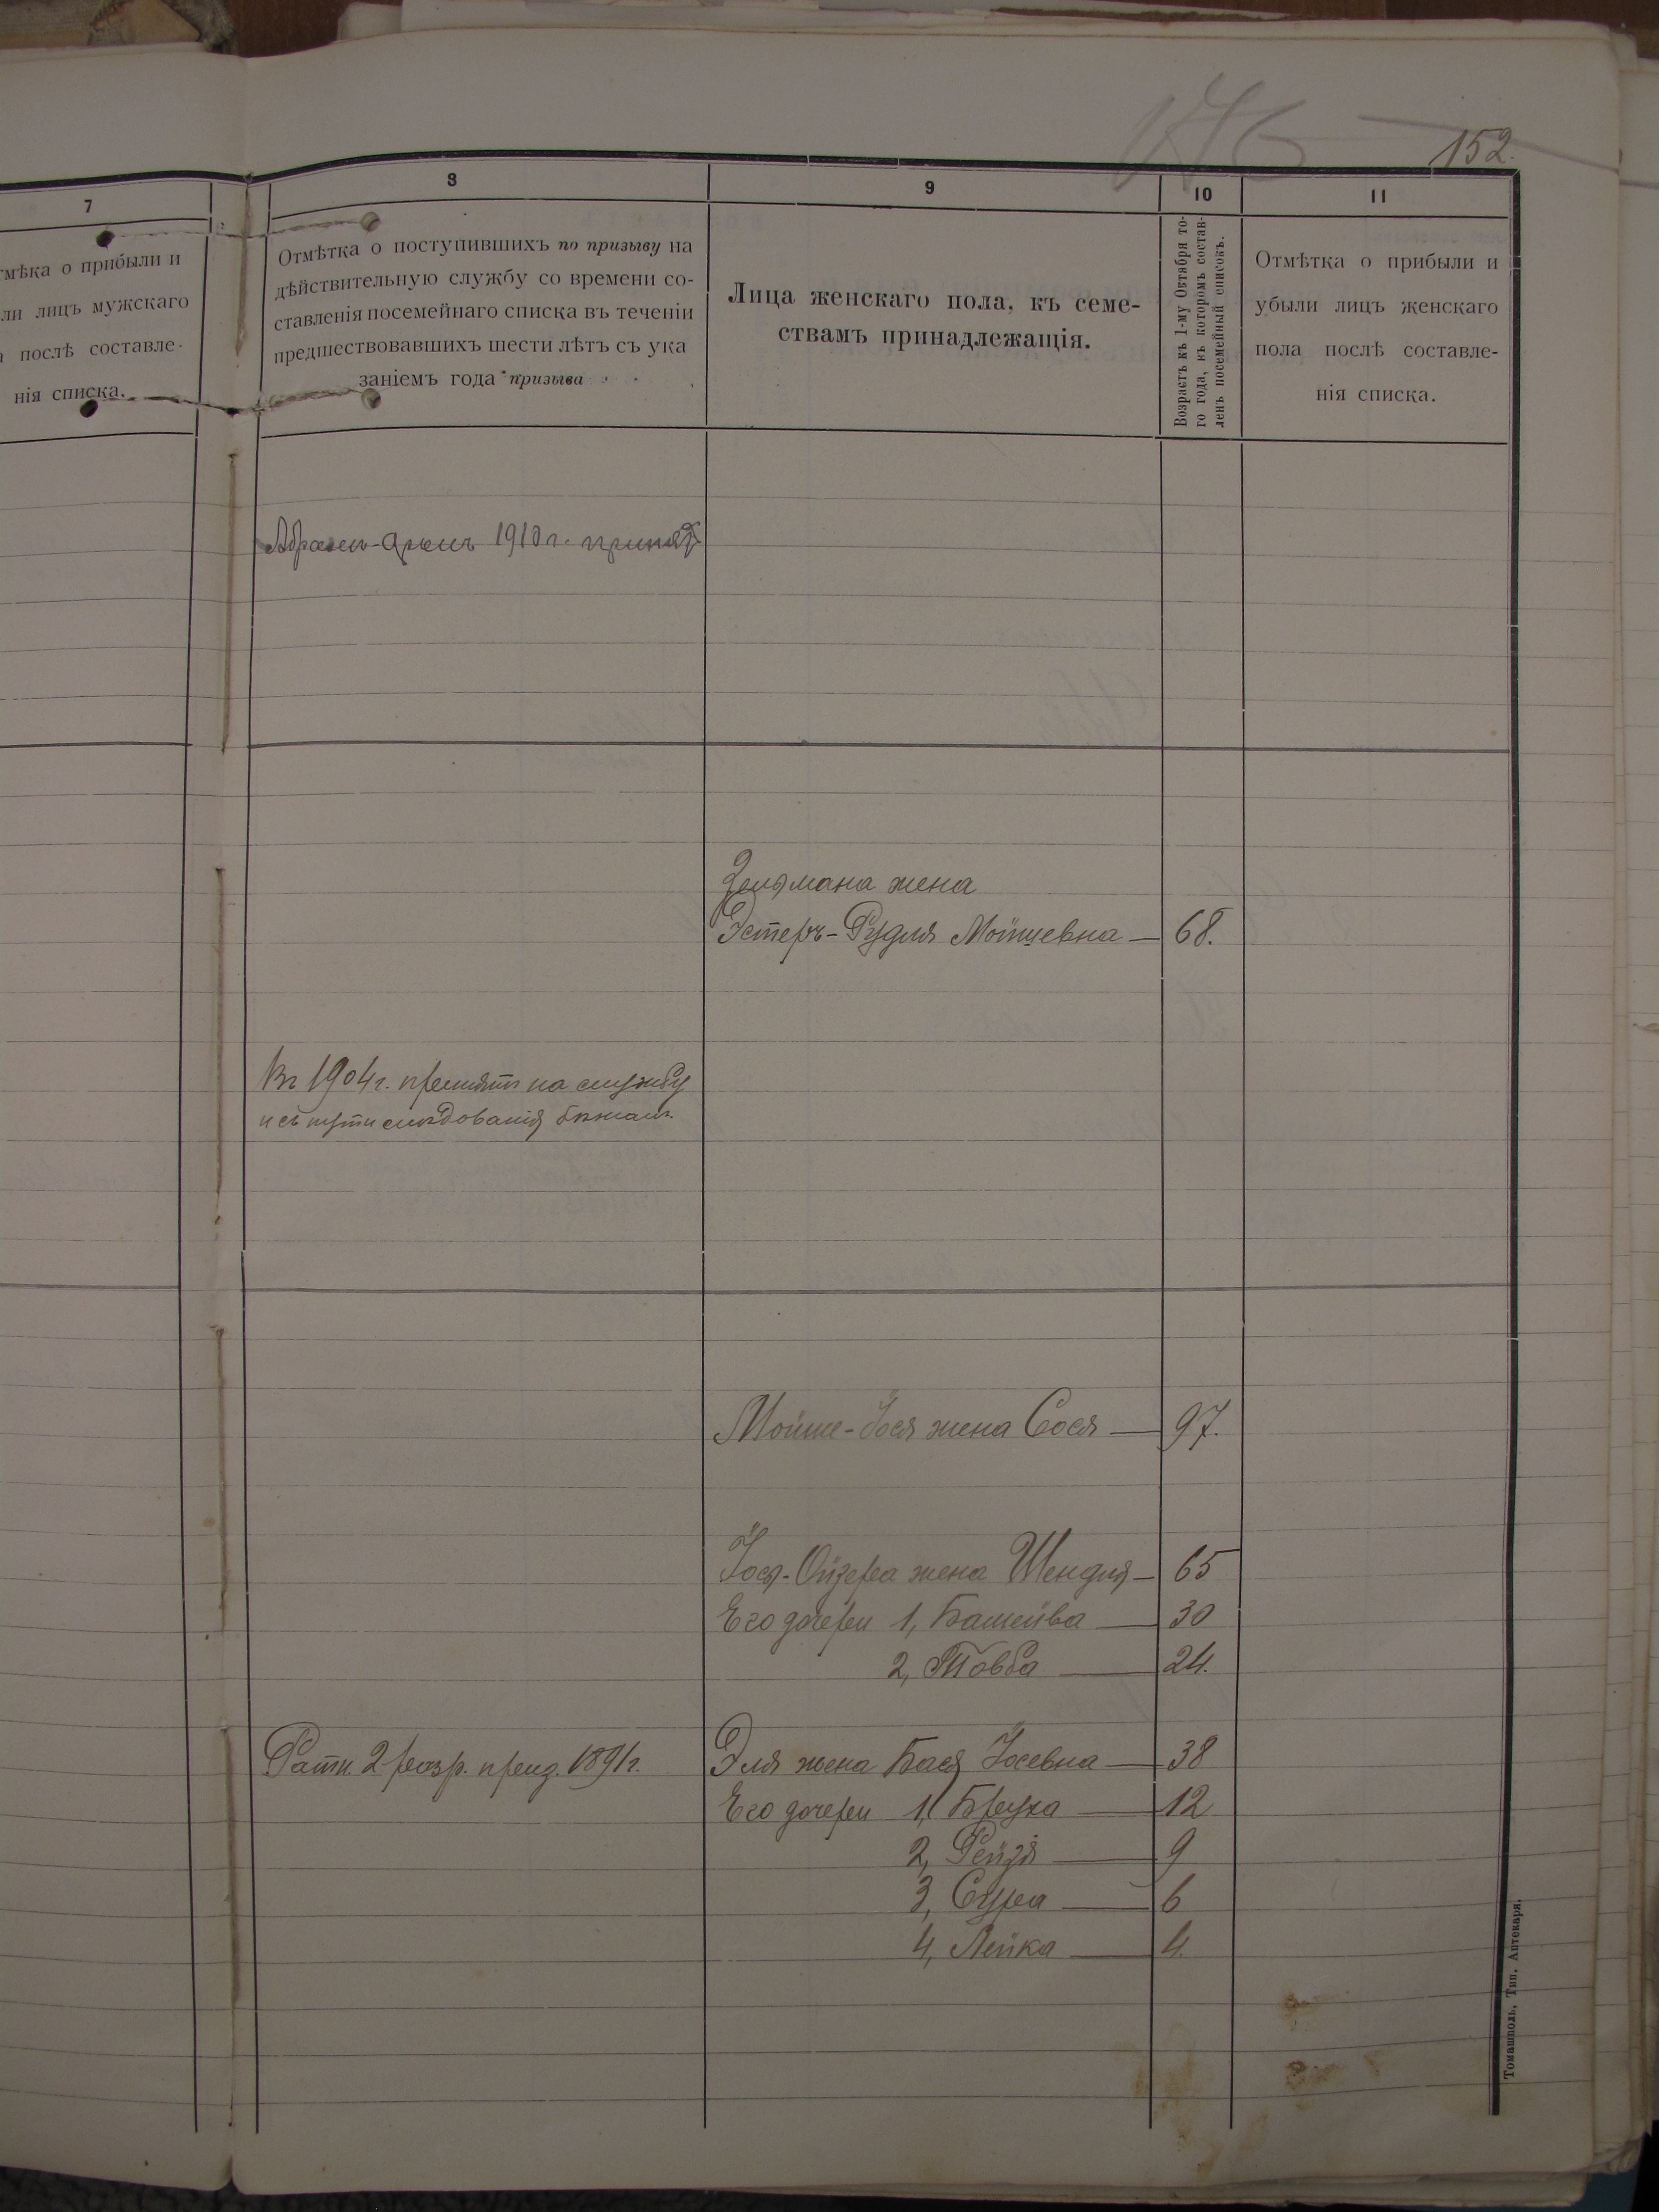 152.
7
8
9
10
11
тмѣка о прибыли и
ли лицъ мужскаго
а послѣ составле-
нія списка.
Отмѣтка о поступившихъ по призыву на
дѣйствительную службу со времени со-
ставленія посемейнаго списка въ теченіи
предшествовавшихъ шести лѣтъ съ ука
заніемъ года призыва
Лица женскаго пола, къ семе-
ствамъ принадлежащія.
Возрастъ къ 1-му Октября то-
го года, къ которомъ состав-
ленъ посемейный списокъ.
Отмѣтка о прибыли и
убыли лицъ женскаго
пола послѣ составле-
нія списка.
Абрамъ- 1910 г. принятъ
жена
Эстеръ-Рудля Мойшевна — 68.
Въ 1904 г. принятъ на службу
и съ пути слѣдованія бѣжалъ.
Мойше-Іося жена Сося — 97.
Іося-Ойзера жена Шендля — 65
Его дочери 1, Башейва — 30
2, Товба — 24.
Ратн. 2 разр. приз. 1891 г.
Эля жена Бася Іосевна — 38
Его дочери 1, Бруха — 12
2, Рейзя — 9
3, Сура — 6
4, Лейка — 4.
Томашполь, Тип. Аптекаря.